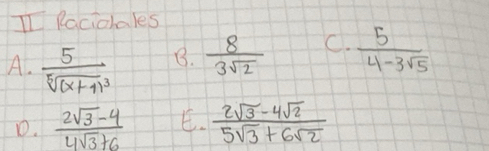 II Raciolales
A. 5/⁵√(x+1)³
B. 8/3√2
C. 5/4-3√5
D. 2√3-4/4√3+6
E. 2√3-4√2/5√3+6√2